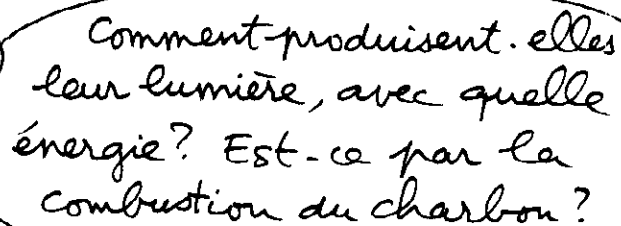 Comment produisent-elles
leur lumière, avec quelle
énergie? Est-ce par la
combustion du charbon?